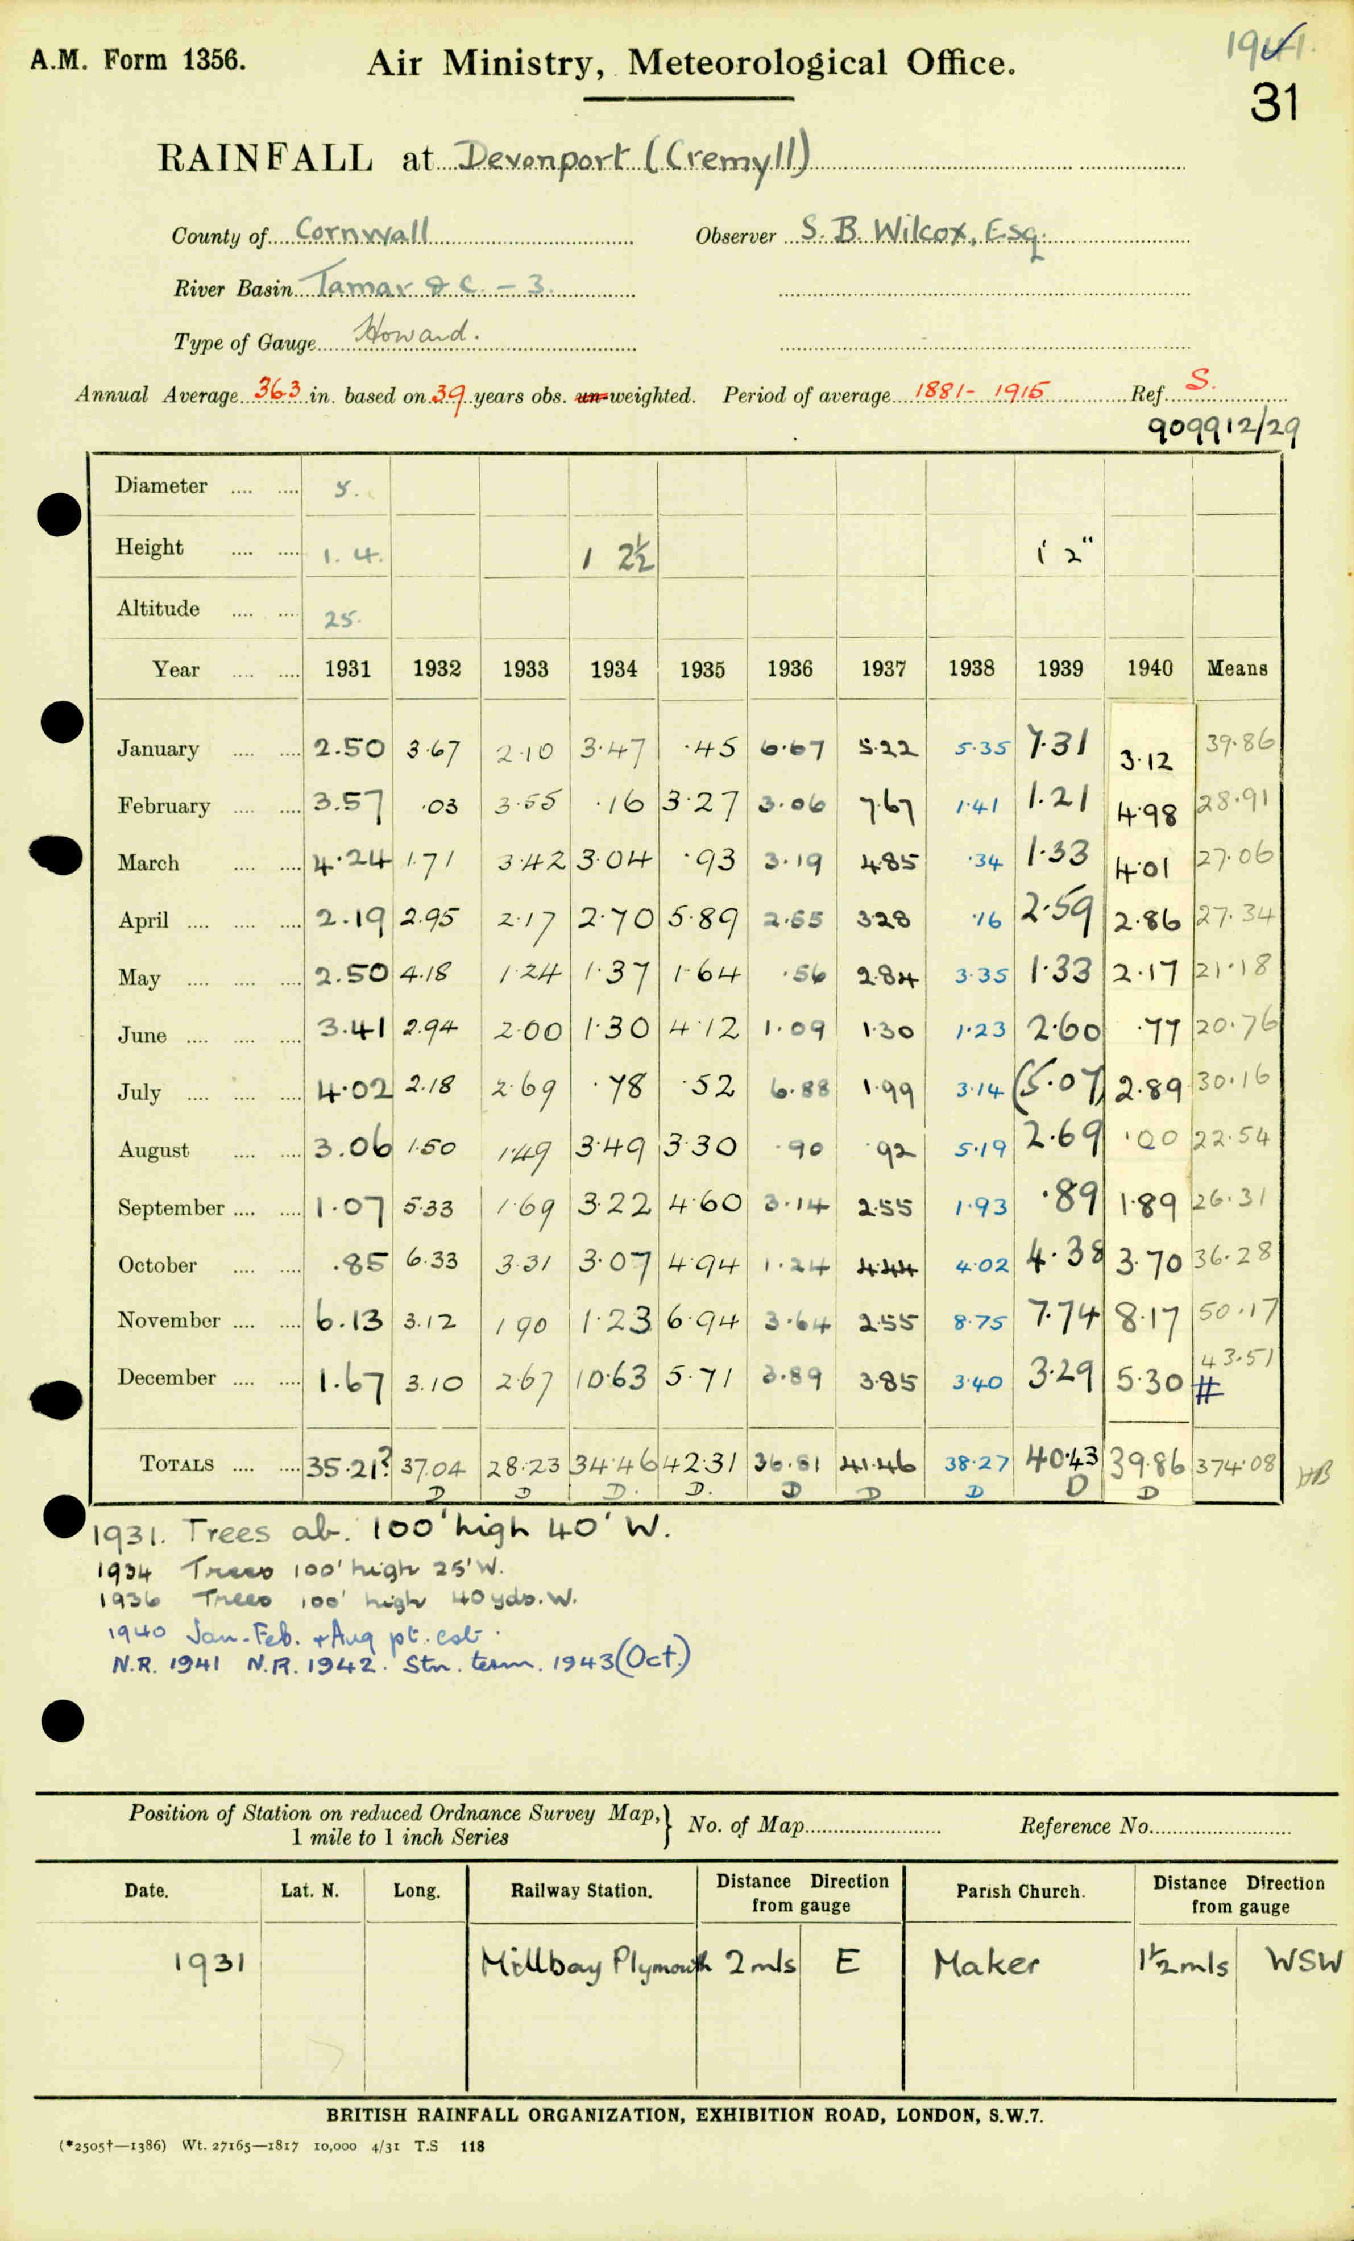 A.M. Form 1356. Air Ministry, Meteorological Office. 1941.
31
RAINFALL at Devonport (Cremyll)
County of Cornwall Observer S. B. Wilcox, Esq.
River Basin Tamar &c. - 3.
Type of Gauge Howard.
Annual Average 36.3 in. based on 39 years obs. un-weighted. Period of average 1881- 1915 Ref. S.
909912/29
Diameter .... .... 5.
Height .... .... 1. 4. 1 2½ 1' 2"
Altitude .... .... 25.
Year .... .... 1931 1932 1933 1934 1935 1936 1937 1938 1939 1940 Means
January .... .... 2.50 3.67 2.10 3.47 .45 6.67 5.22 5.35 7.31 3.12 39.86
February .... .... 3.57 .03 3.55 .16 3.27 3.06 7.67 1.41 1.21 4.98 28.91
March .... .... 4.24 1.71 3.42 3.04 .93 3.19 4.85 .34 1.33 4.01 27.06
April .... .... .... 2.19 2.95 2.17 2.70 5.89 2.55 3.28 .16 2.59 2.86 27.34
May .... .... .... 2.50 4.18 1.24 1.37 1.64 .56 2.84 3.35 1.33 2.17 21.18
June .... .... .... 3.41 2.94 2.00 1.30 4.12 1.09 1.30 1.23 2.60 .77 20.76
July .... .... .... 4.02 2.18 2.69 .78 .52 6.88 1.99 3.14 (5.07) 2.89 30.16
August .... .... 3.06 1.50 1.49 3.49 3.30 .90 .92 5.19 2.69 .00 22.54
September .... .... 1.07 5.33 1.69 3.22 4.60 3.14 2.55 1.93 .89 1.89 26.31
October .... .... .85 6.33 3.31 3.07 4.94 1.24 4.44 4.02 4.38 3.70 36.28
November .... .... 6.13 3.12 1.90 1.23 6.94 3.64 2.55 8.75 7.74 8.17 50.17
December .... .... 1.67 3.10 2.67 10.63 5.71 3.89 3.85 3.40 3.29 5.30 43.51 #
TOTALS .... .... 35.21? 37.04 28.23 34.46 42.31 36.81 41.46 38.27 40.43 39.86 374.08 HB
D D D. D. D D D D D
1931. Trees ab. 100' high 40' W.
1934 Trees 100' high 25' W.
1936 Trees 100' high 40 yds. W.
1940 Jan. Feb. + Aug pt. est.
N.R. 1941 N.R. 1942. Stn. term. 1943 (Oct.)
Position of Station on reduced Ordnance Survey Map,} No. of Map Reference No.
1 mile to 1 inch Series
Date. Lat. N. Long. Railway Station. Distance Direction from gauge Parish Church. Distance Direction from gauge
1931 Millbay Plymouth 2 mls E Maker 1½ mls WSW
BRITISH RAINFALL ORGANIZATION, EXHIBITION ROAD, LONDON, S.W.7.
(*2505†—1386) Wt. 27165—1817 10,000 4/31 T.S 118